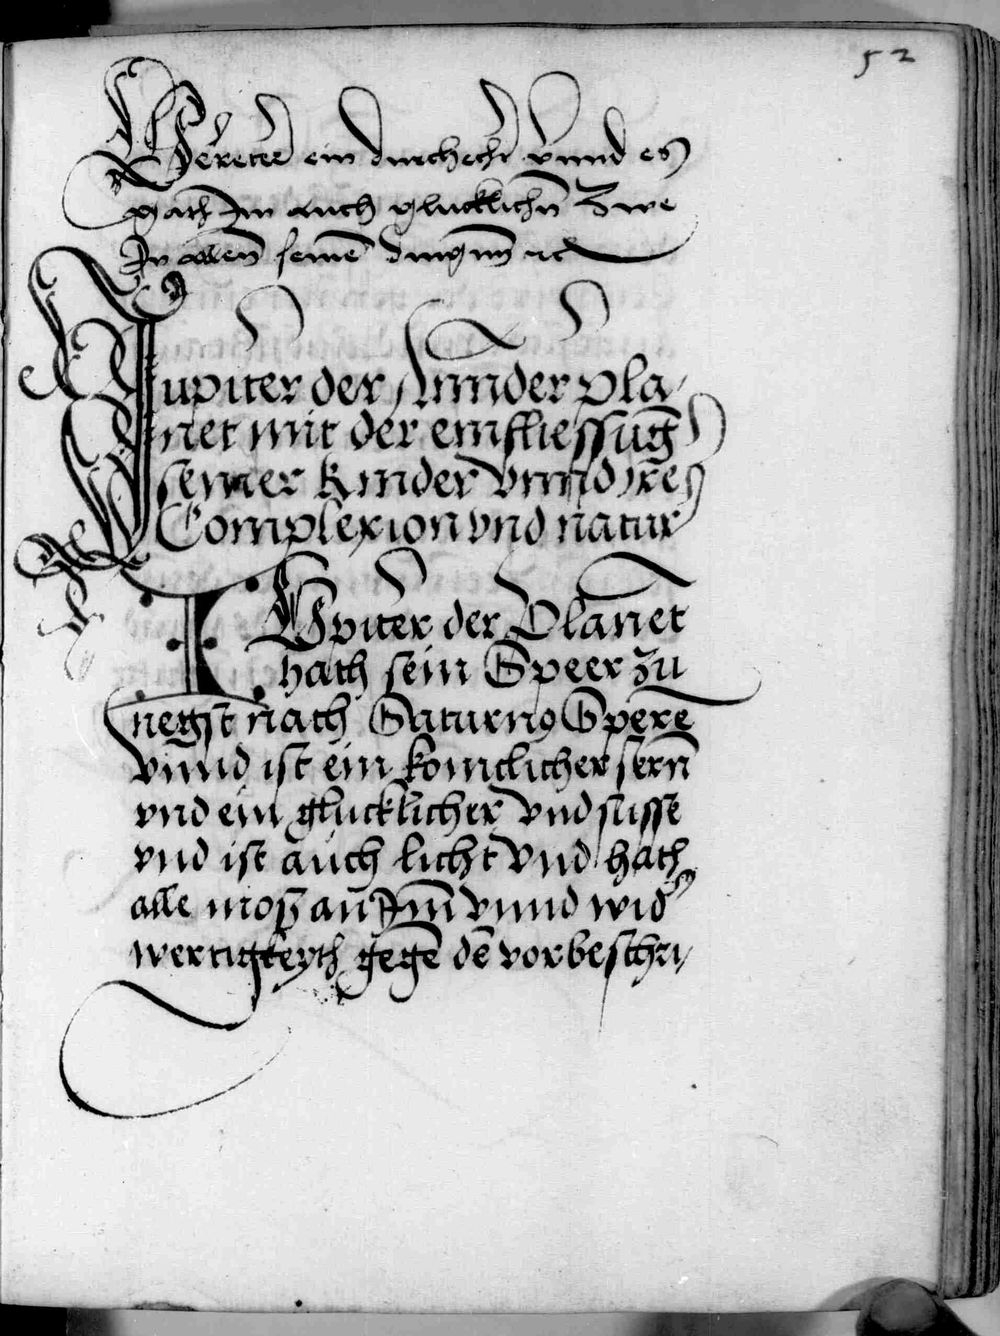 52
ein vnnd es
gath Im auch glucklichñ Zwe
In allen seinē dingnn ꝛc
Jupiter der Annder pla,
net mit der einfliessūg
seiner Kinder vnnd jres
Complexion vnd natur
IVpiter der Planet
hath sein Speer zu
negst nach Saturn9 Spere
vnnd ist ein komclicher sern̄
vnd ein glucklicher vnd susse
vnd ist auch licht vnd hath
alle moß an̄ Im̄ vnnd wid
wertigkeyth gegē dē vorbeschri,